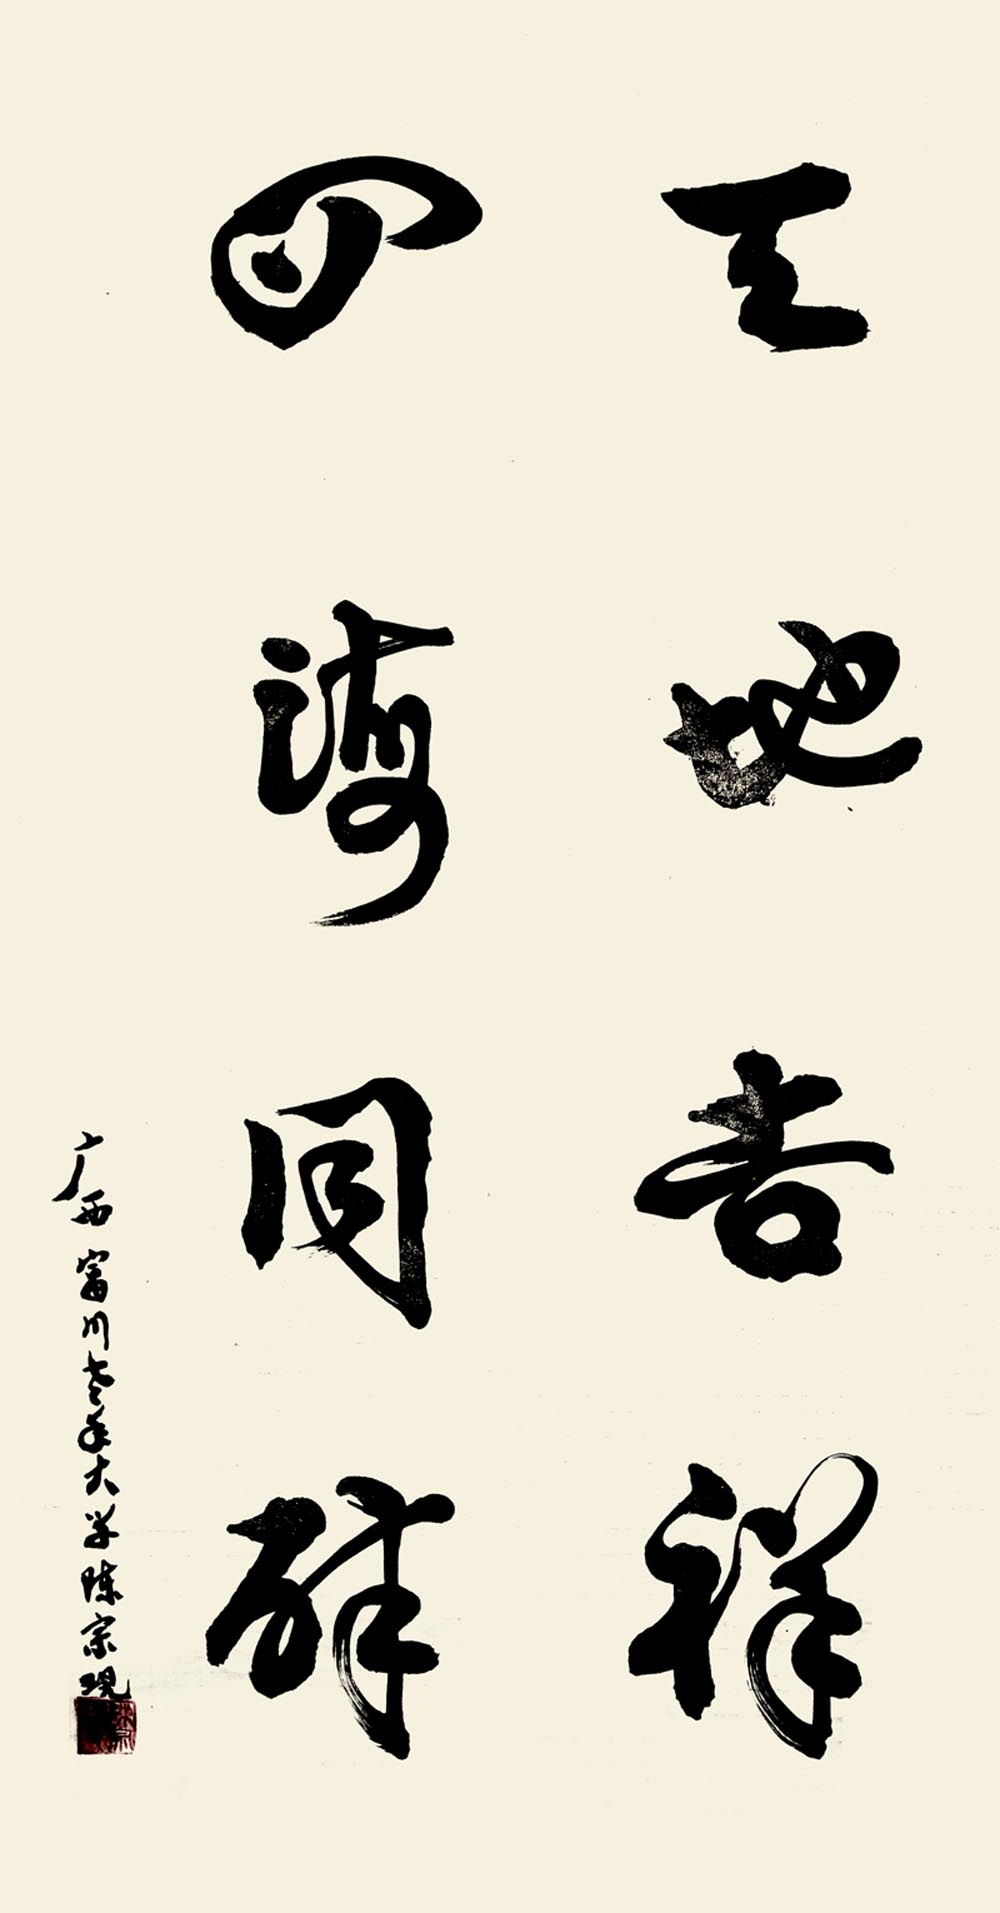 天地吉祥
四海同
广西富川老年大学陈宗现